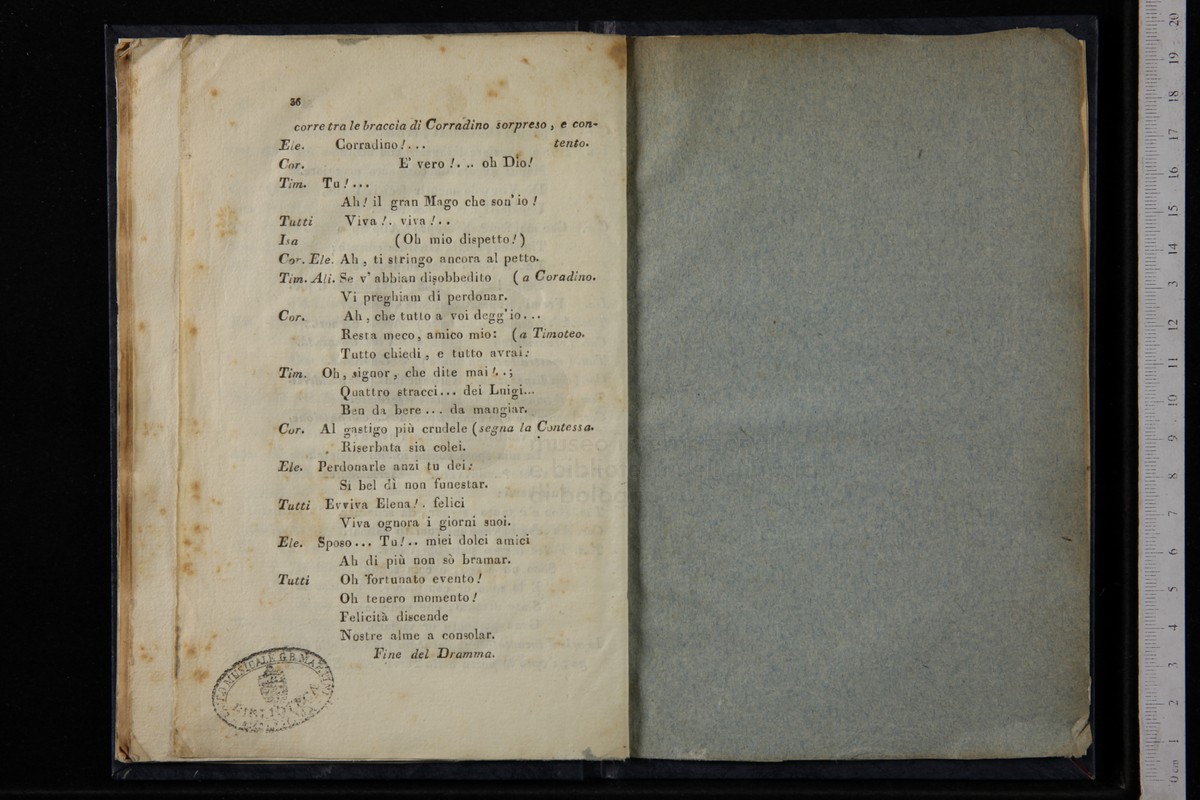 36
corre tra le braccia di Corradino sorpreso, e con-
Ele. Corradino!... tento.
Cor. E' vero!. .. oh Dio!
Tim. Tu!...
Ah! il gran Mago che son' io!
Tutti Viva!. viva!..
Isa (Oh mio dispetto!)
Cor. Ele. Ah, ti stringo ancora al petto.
Tim. Ali. Se v' abbiam disobbedito (a Coradino.
Vi preghiam di perdonar.
Cor. Ah, che tutto a voi degg' io...
Resta meco, amico mio: (a Timoteo.
Tutto chiedi, e tutto avrai:
Tim. Oh, signor, che dite mai!..;
Quattro stracci... dei Luigi...
Ben da bere... da mangiar.
Cor. Al gastigo più crudele (segna la Contessa.
Riserbata sia colei.
Ele. Perdonarle anzi tu dei:
Si bel dì non funestar.
Tutti Evviva Elena!. felici
Viva ognora i giorni suoi.
Ele. Sposo... Tu!.. miei dolci amici
Ah di più non sò bramar.
Tutti Oh fortunato evento!
Oh tenero momento!
Felicità discende
Nostre alme a consolar.
Fine del Dramma.
MUSICALE G.B. MARTINI
BIBLIOTECA
museo
e biblio
di bolo